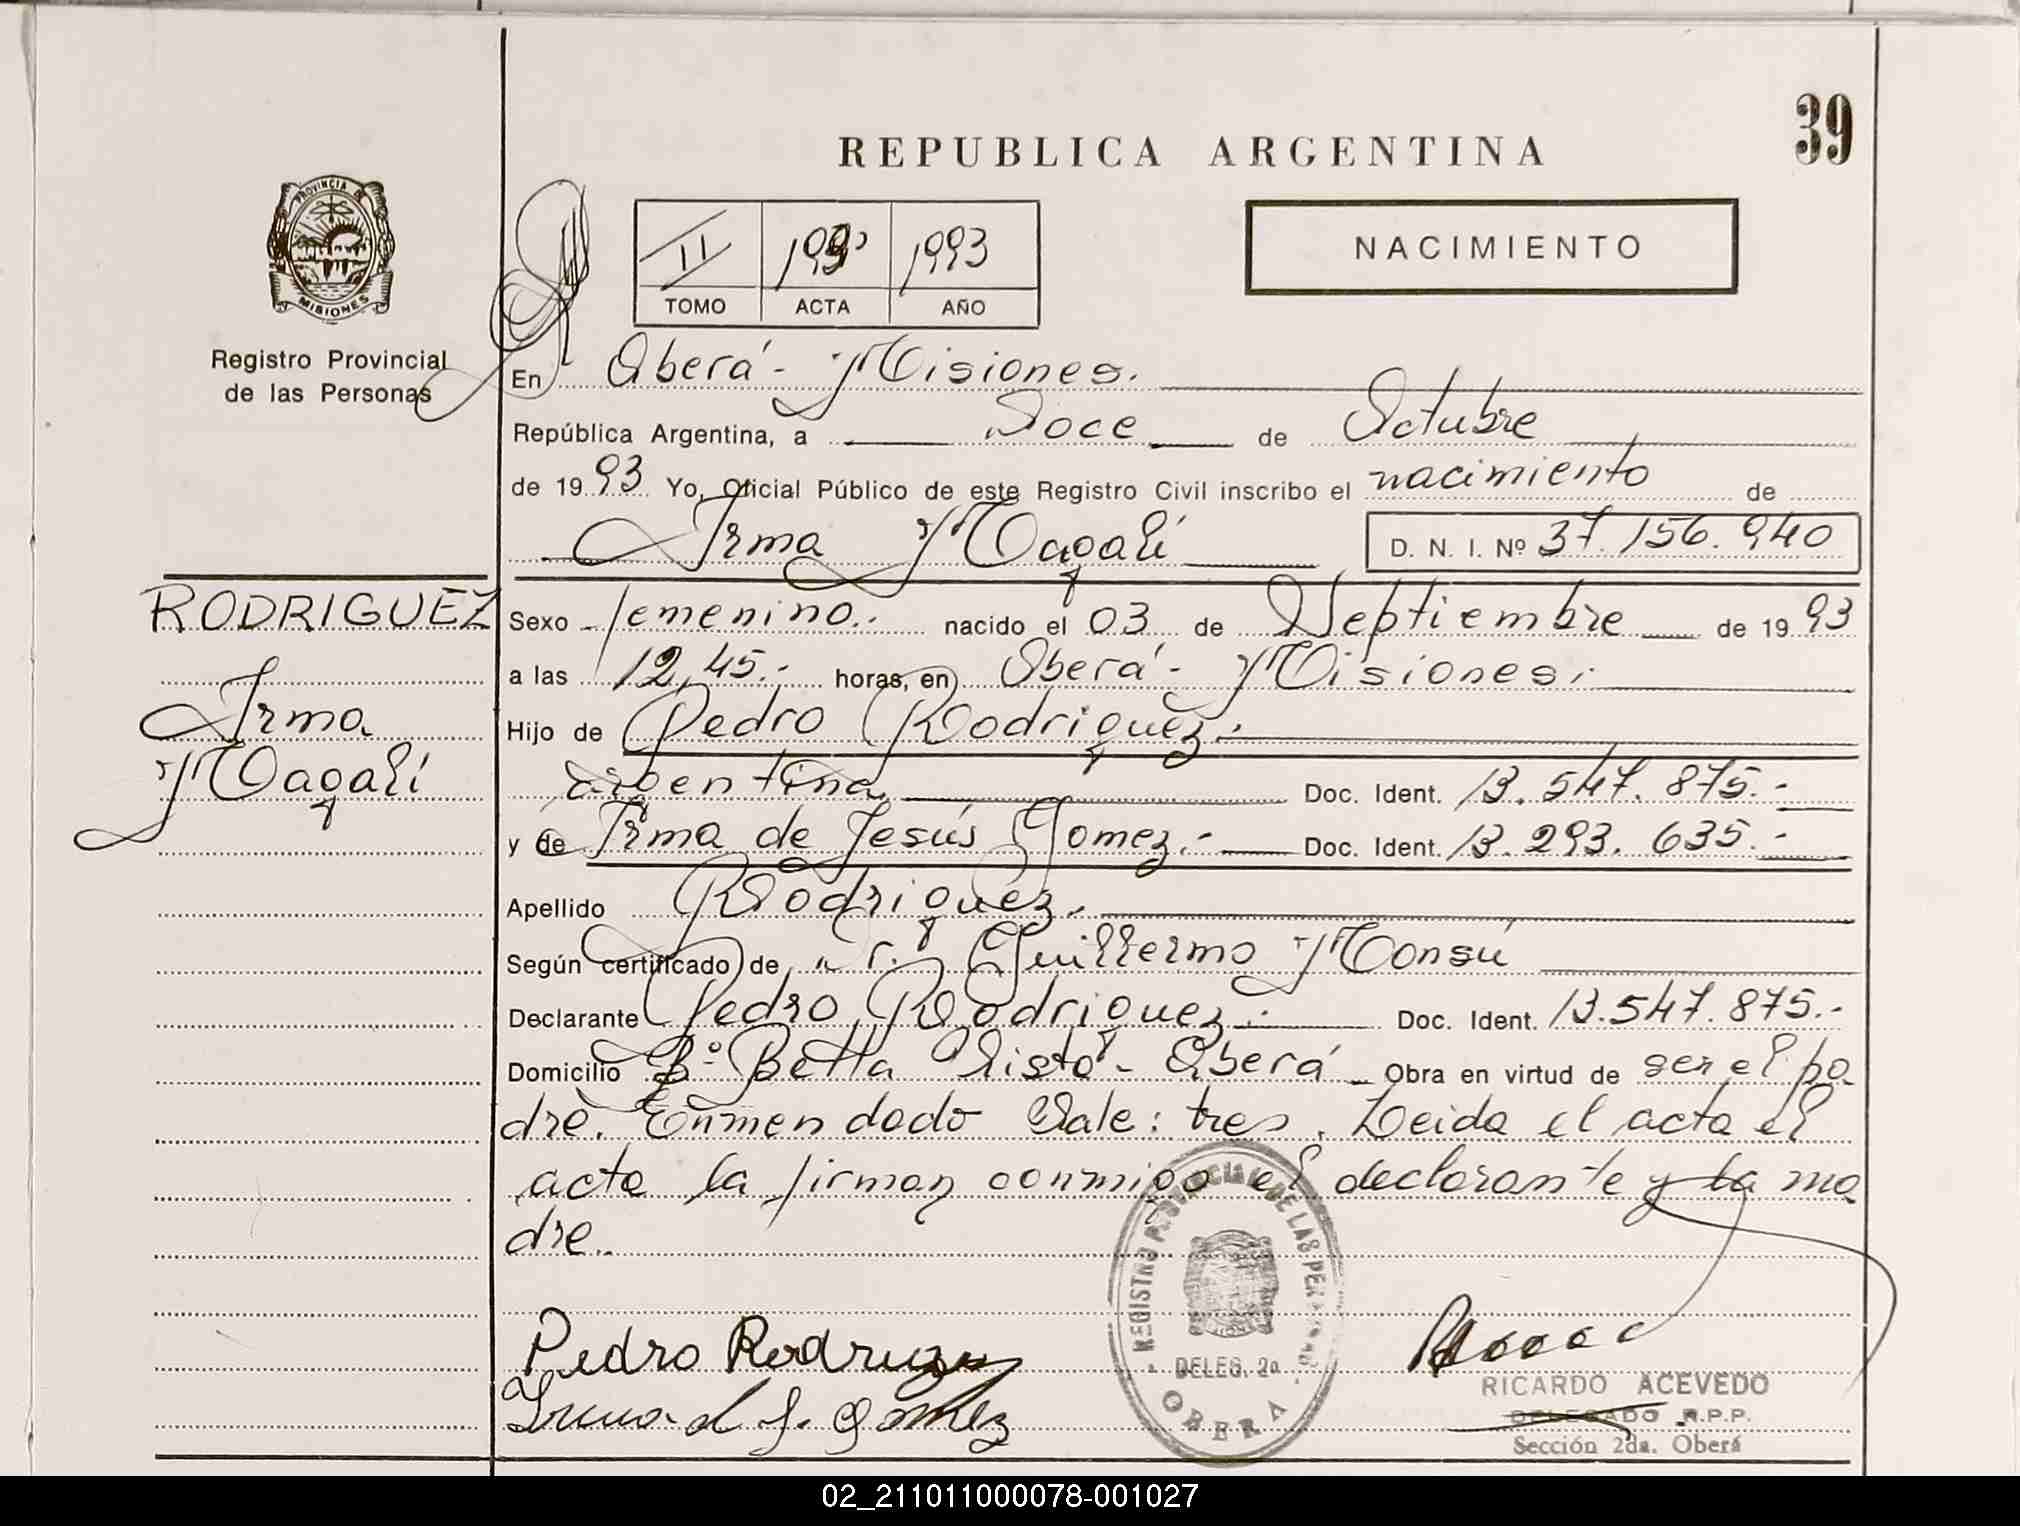 39
REPUBLICA ARGENTINA
PROVINCIA DE
MISIONES
Registro Provincial
de las Personas
II 1993
TOMO ACTA AÑO
NACIMIENTO
En Oberá - Misiones.
República Argentina, a Doce de Octubre
de 1993 Yo, Oficial Público de este Registro Civil inscribo el nacimiento de
Irma Magalí D. N. I. Nº 37.156.940
RODRIGUEZ
Irma
Magalí
Sexo femenino.- nacido el 03 de Septiembre de 1993
a las 12,45.- horas, en Oberá - Misiones.
Hijo de Pedro Rodriguez.-
argentina Doc. Ident. 13.547.875.-
y de Irma de Jesús Gomez.- Doc. Ident. 13.293.635.-
Apellido Rodriguez.
Según certificado de Dr. Guillermo Monsú
Declarante Pedro Rodriguez.- Doc. Ident. 13.547.875.-
Domicilio Bº Bella Vista - Oberá - Obra en virtud de ser el pa-
dre. Enmendado Vale: tres. Leida el acta el
acta la firman conmigo el declarante y la ma
dre.
Pedro Rodriguez
Irma d J. Gomez
REGISTRO PROVINCIAL DE LAS PERSONAS
DELEG. 2a
OBERA
RICARDO ACEVEDO
DELEGADO R.P.P.
Sección 2da. Oberá
02_211011000078-001027